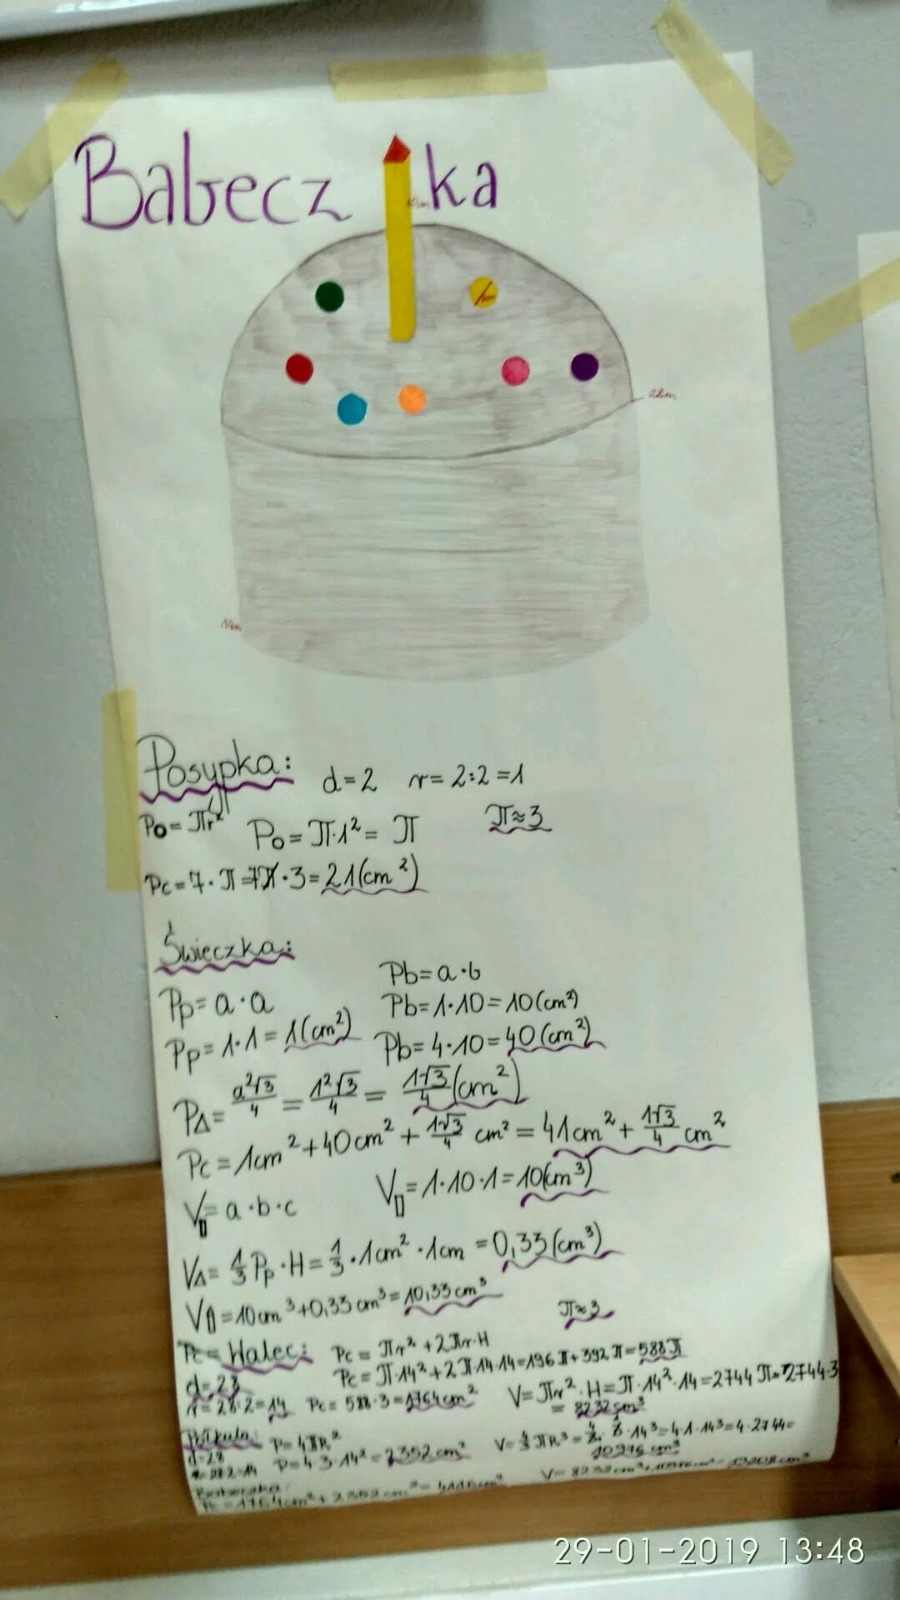 Babeczka
10cm
28cm
14cm
Posypka: d=2 r=2:2=1
Po=πr² Po=π·1²=π π≈3
Pc=7·π=7π·3=21(cm²)
Świeczka:
Pp=a·a Pb=a·b
Pp=1·1=1(cm²) Pb=1·10=10(cm²)
Pb=4·10=40(cm²)
P△=a²√3/4=1²√3/4=1√3/4(cm²)
Pc=1cm²+40cm²+1√3/4cm²=41cm²+1√3/4cm²
V▯=a·b·c V▯=1·10·1=10(cm³)
V△=1/3Pp·H=1/3·1cm²·1cm=0,33(cm³)
V=10cm³+0,33cm³=10,33cm³ π≈3
Walec: Pc=πr²+2πr·H
d=28 Pc=π·14²+2π14·14=196π+392π=588π
r=28:2=14 Pc=588·3=1764cm² V=πr²·H=π·14²·14=2744π≈2744·3
=8232cm³
Półkula: P=4πR² V=4/3πR³= ·14³=4·1·14³=4·2744=
d=28 P=4·3·14²=2352cm² 10976cm³
r=28:2=14
Babeczka:
Pc=1764cm²+2352cm²=4116cm² V=8232cm³+10976cm³=
29-01-2019 13:48